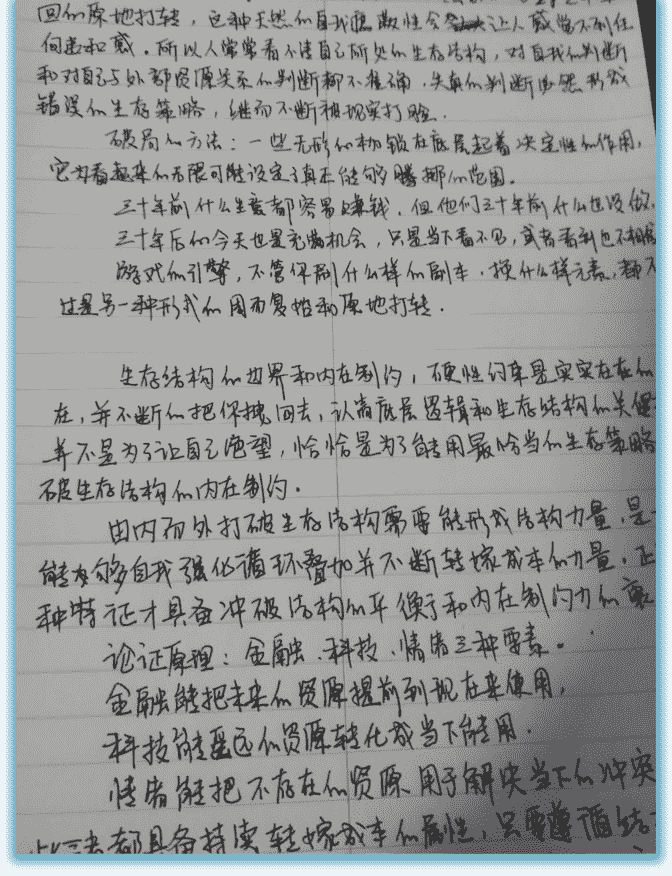 回的原地打转，这种天然的自我隐散性会让人感觉不到任
何违和感。所以人常常看不清自己所处的生存结构，对自我的判断
和对自己与外部资源关系的判断都不准确，失真的判断必然形成
错误的生存策略，继而不断被现实打脸。
破局的方法：一些无形的枷锁在底层起着决定性的作用，
它为看起来的无限可能设定了真正能够腾挪的范围。
三十年前什么生意都容易赚钱，但他们三十年前什么也没做，
三十年后的今天也是充满机会，只是当下看不见，或者看到也不相
游戏的引擎，不管你刷什么样的副本，换什么样元素，都不
过是另一种形式的周而复始和原地打转。
生存结构的边界和内在制约，硬性约束是实实在在的
在，并不断的把你拽回去，认清底层逻辑和生存结构的关
并不是为了让自己绝望，恰恰是为了能用最恰当的生存策略
破生存结构的内在制约。
由内而外打破生存结构需要能形成结构力量，是一
能够自我强化循环叠加并不断转嫁成本的力量，正
种特征才具备冲破结构的平衡和内在制约力的
论证原理：金融、科技、情绪三种要素。
金融能把未来的资源提前到现在来使用，
科技能遥远的资源转化成当下能用。
情绪能把不存在的资源用于解决当下的冲突
此三者都具备持续转嫁成本的属性，只要遵循结